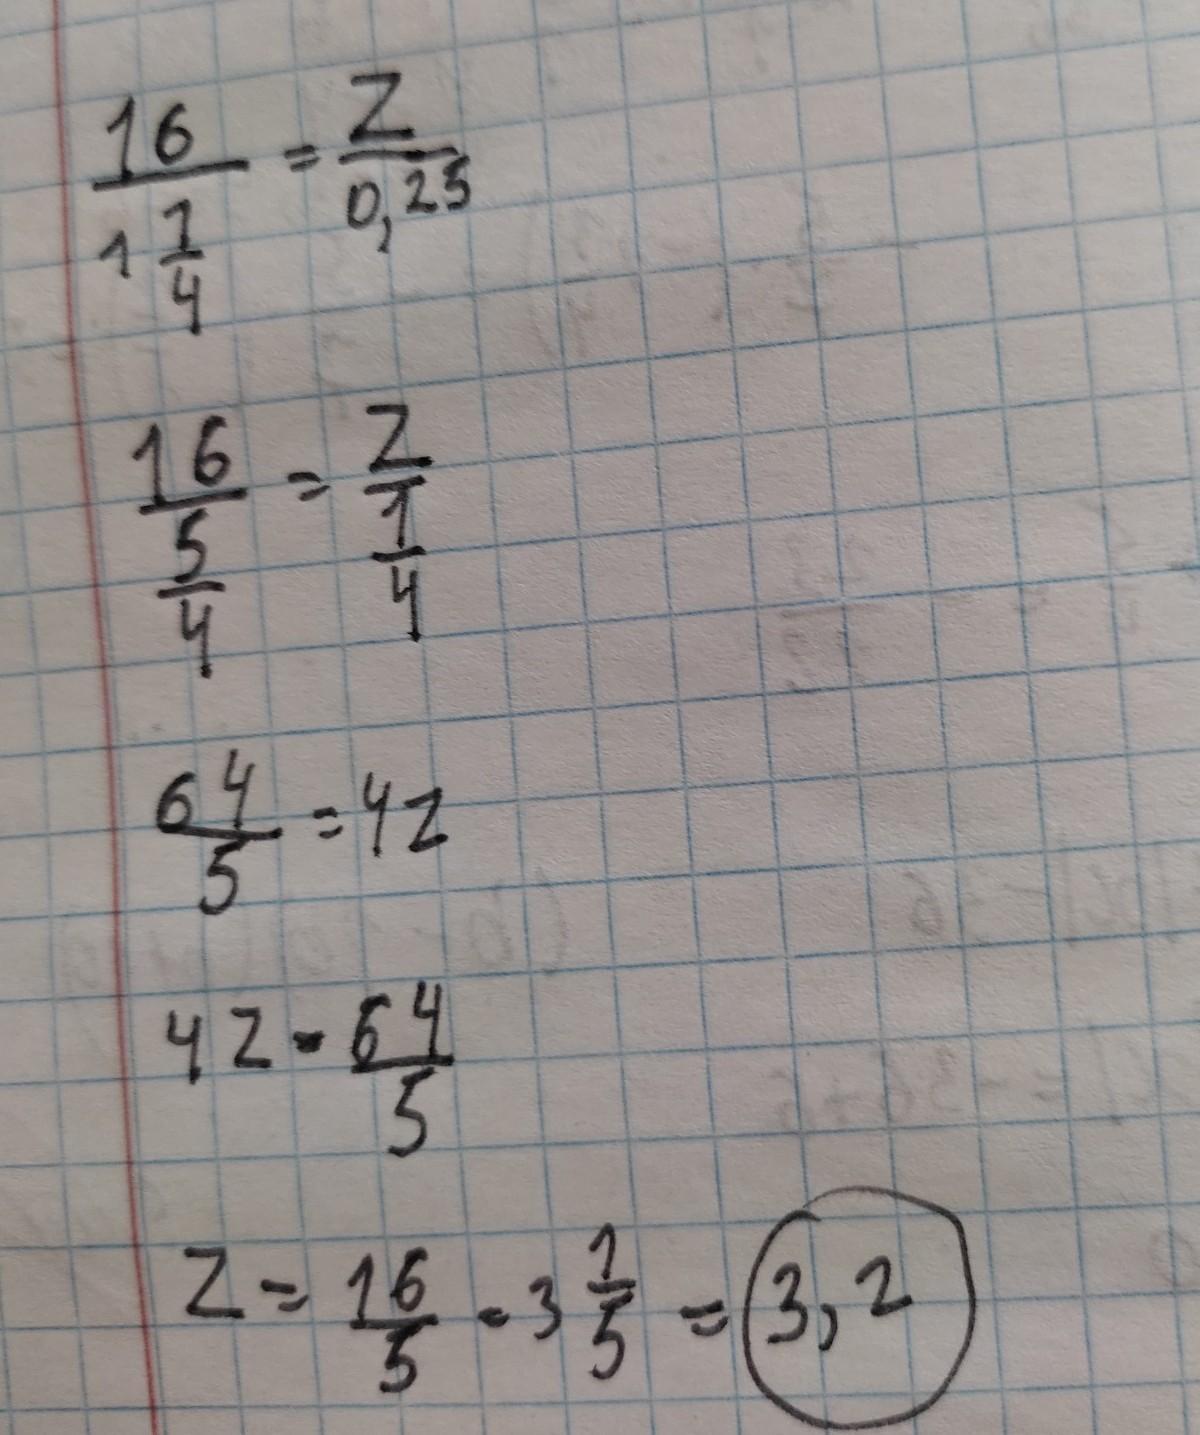 16/(1 1/4) = Z/0,25
16/(5/4) = Z/(1/4)
64/5 = 4Z
4Z = 64/5
Z = 16/5 = 3 1/5 = 3,2